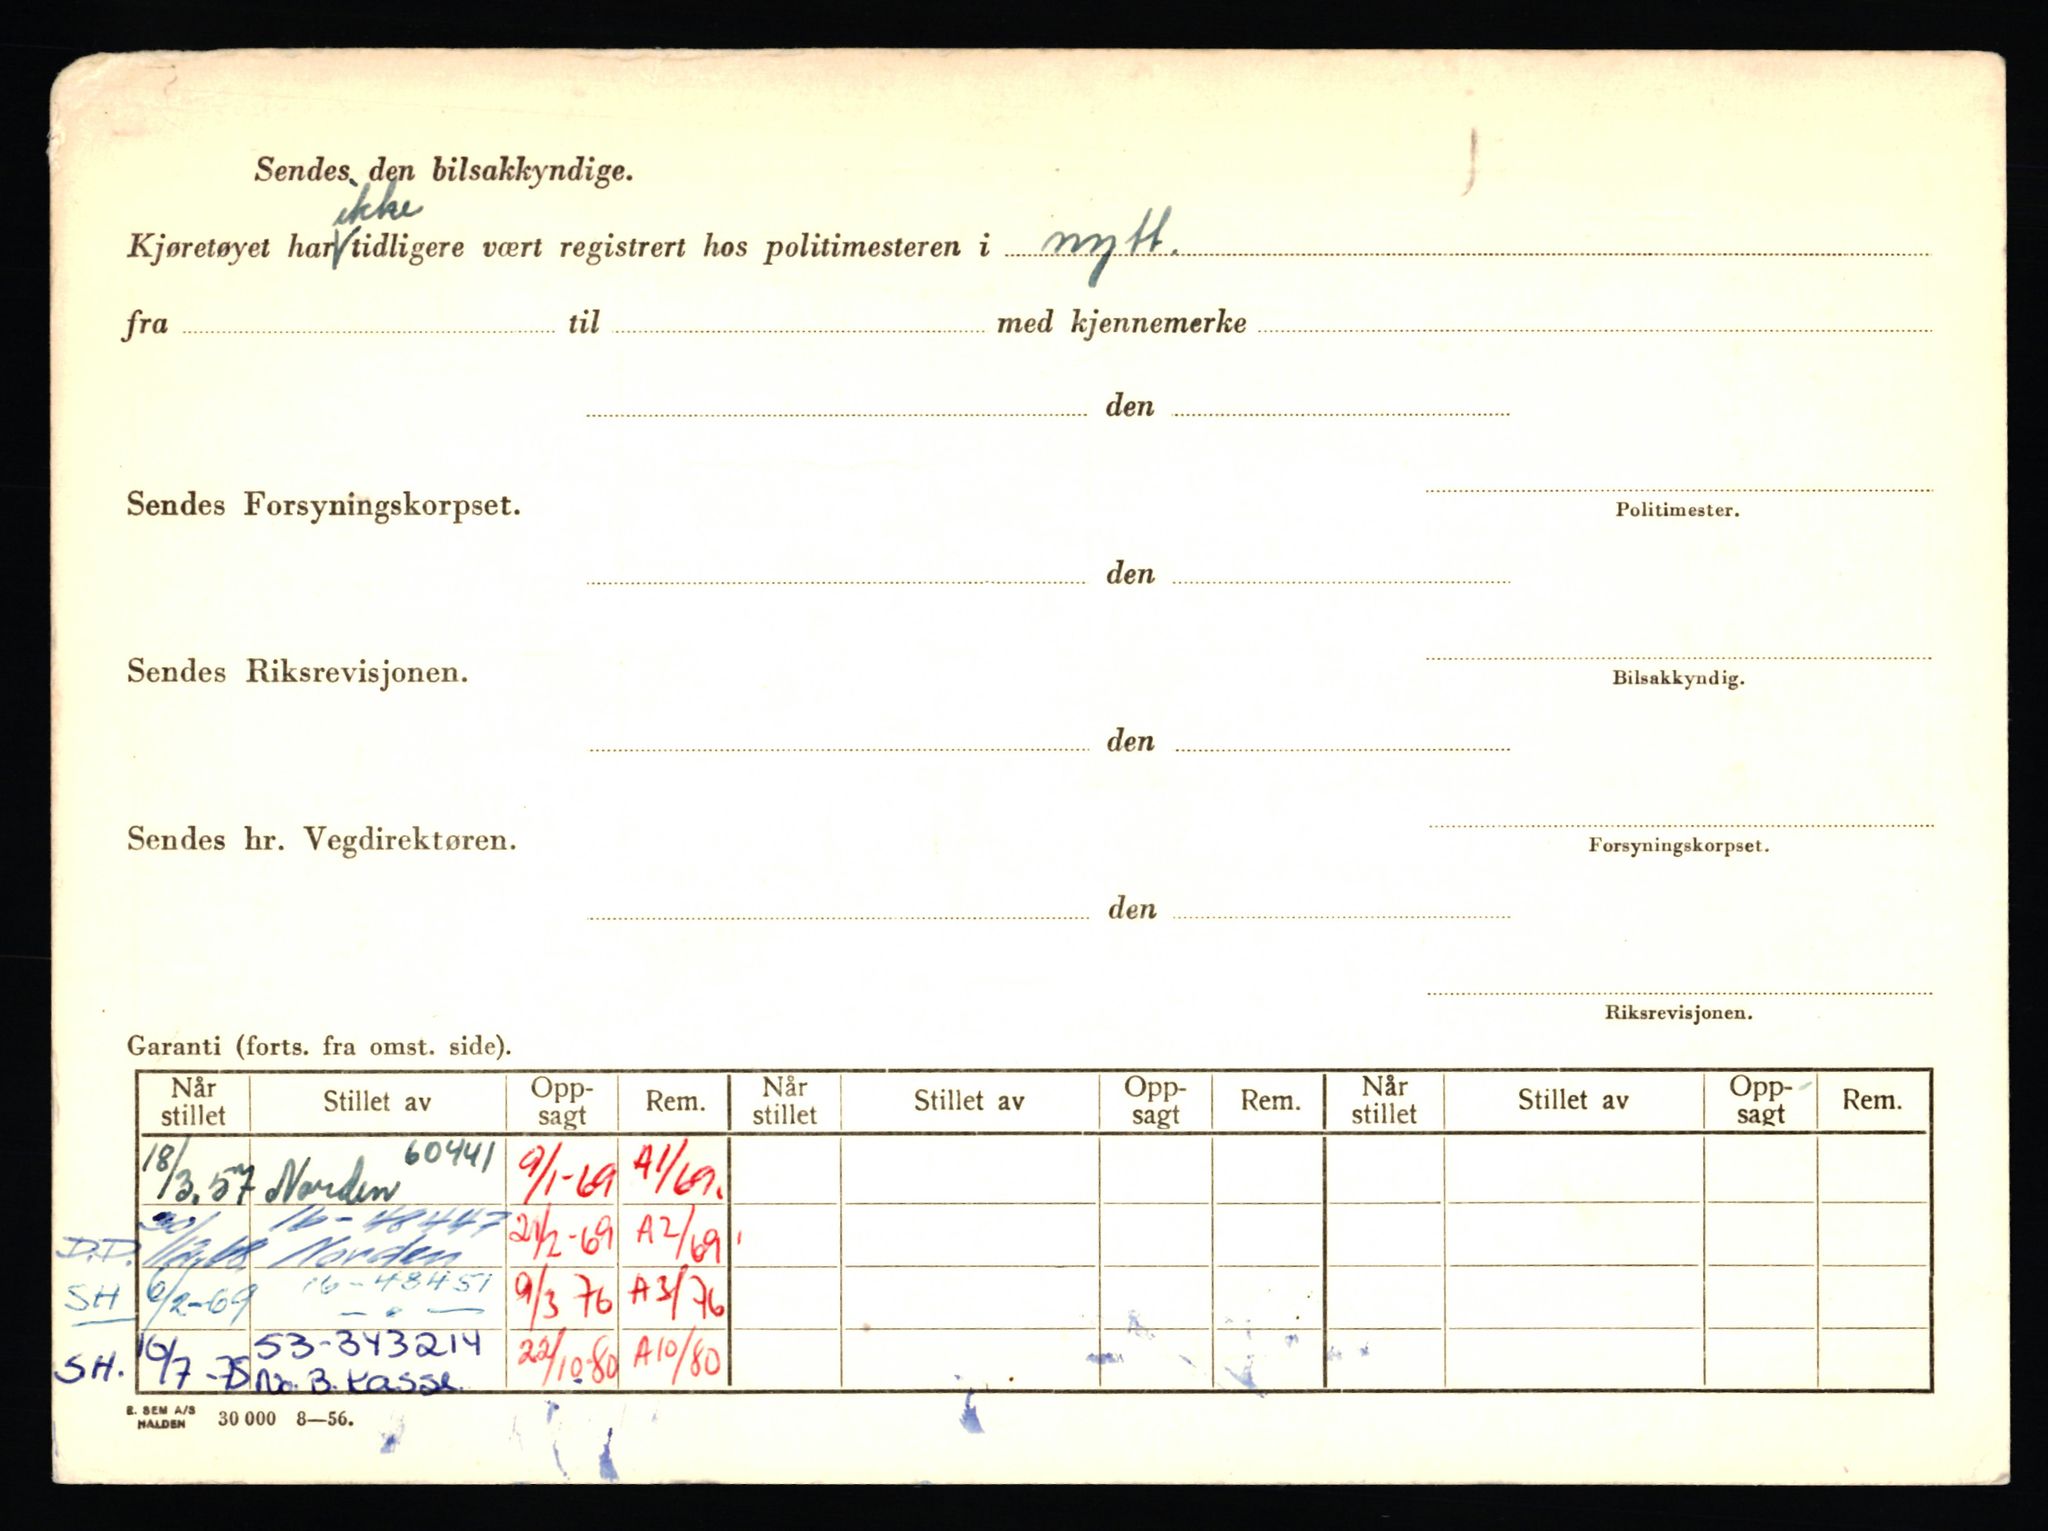 Sendes den bilsakkyndige.
ikke
Kjøretøyet har V tidligere vært registrert hos politimesteren i nytt.
fra til med kjennemerke
den
Sendes Forsyningskorpset.
Politimester.
den
Sendes Riksrevisjonen.
Bilsakkyndig.
den
Sendes hr. Vegdirektøren.
Forsyningskorpset.
den
Riksrevisjonen.
Garanti (forts. fra omst. side).
Når stillet Stillet av Opp-sagt Rem. Når stillet Stillet av Opp-sagt Rem. Når stillet Stillet av Opp-sagt Rem.
18/3.57 Norden 60441 9/1-69 A1/69.
D.D. 16-48447 Norden 21/2-69 A2/69
SH 6/2-69 16-48451 — " — 9/3 76 A3/76
SH. 16/7-75 53-343214 No. B. Kasse. 22/10-80 A10/80
E. SEM A/S HALDEN 30 000 8—56.